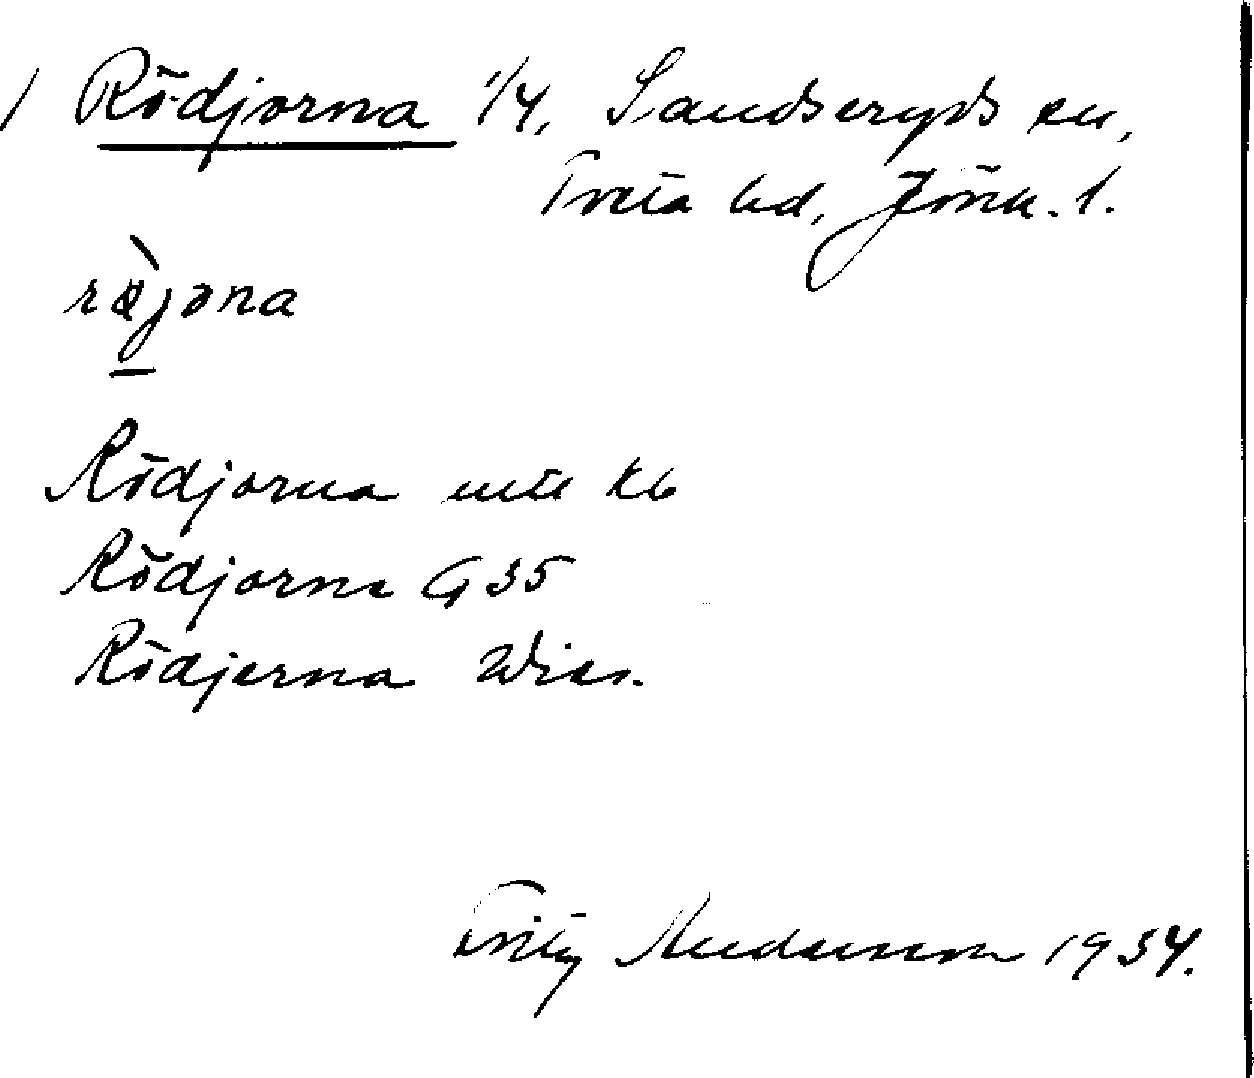 / Rödjorna 1/4, Sandseryds sn,
Tveta hd, Jönk. l.
röjona
Rödjorna uttr Kb
Rödjorna G35
Rödjerna Wies.
Fritz Andersson 1934.